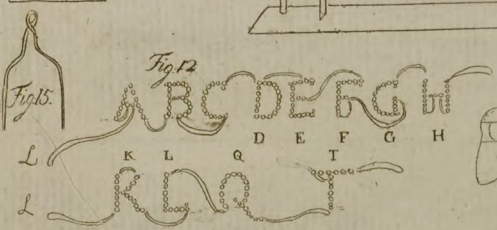 Fig. 12
Fig 15.
A B C D E F G H
D E F G H
L
K L Q T
K L Q T
L